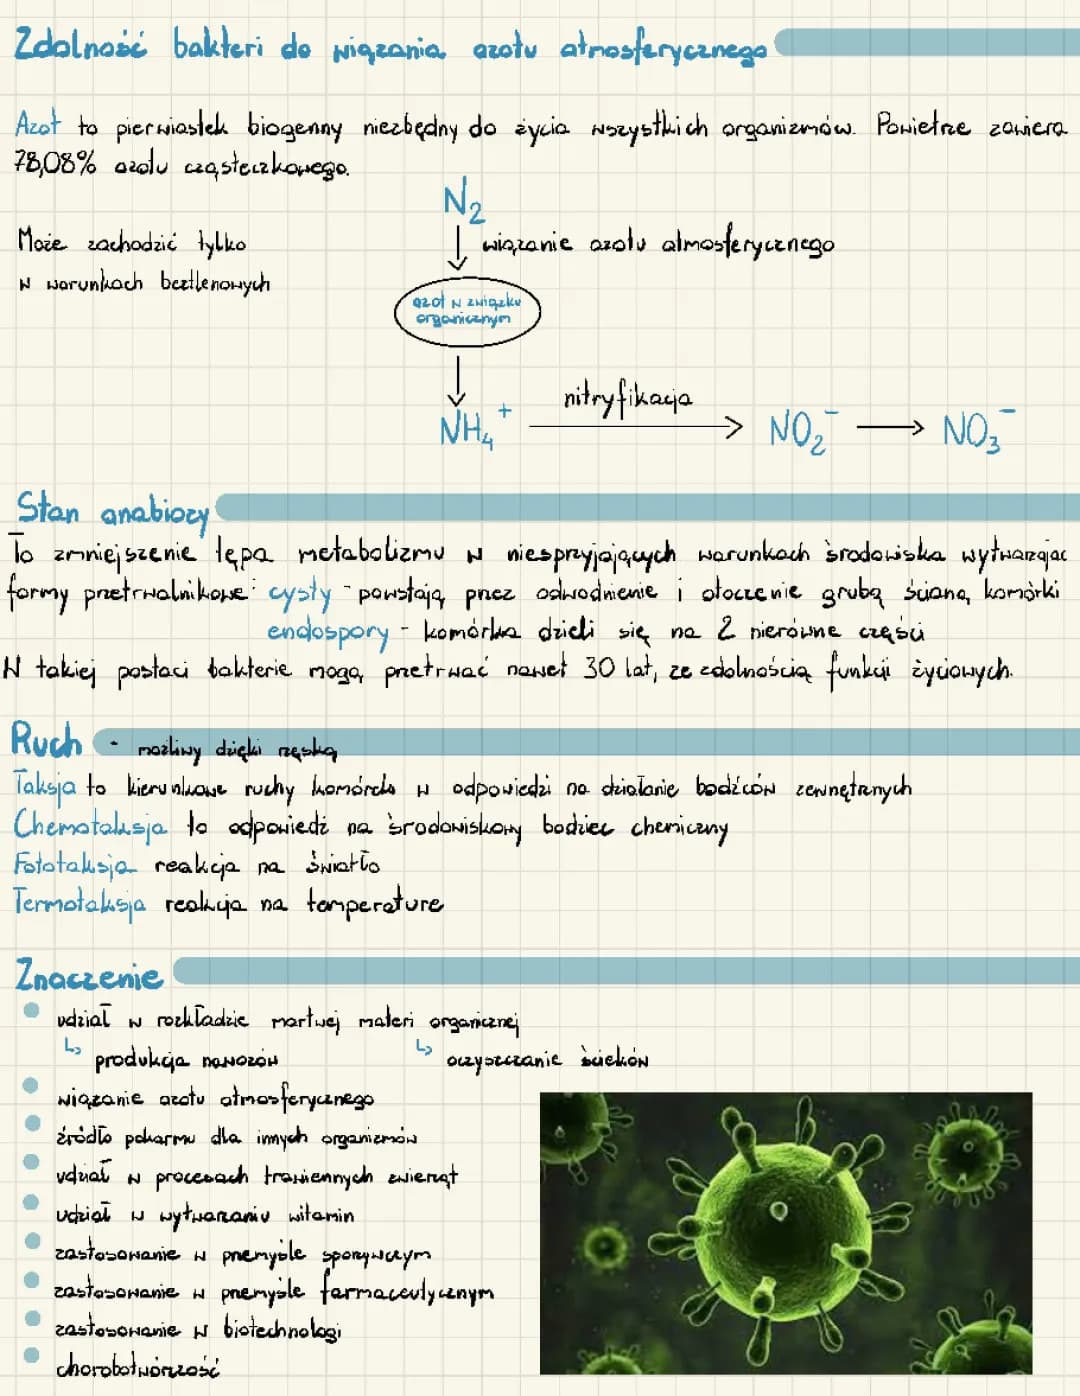 Zdolność bakteri do wiązania azotu atmosferycznego
Azot to pierwiastek biogenny niezbędny do życia wszystkich organizmów. Powietrze zawiera
78,08% azotu cząsteczkowego.
N₂
Może zachodzić tylko
w warunkach beztlenowych
wiązanie azotu atmosferycznego
azot w związku
organicznym
nitryfikacja
NH₄⁺ NO₂⁻ NO₃⁻
Stan anabiozy
To zmniejszenie tępa metabolizmu w niesprzyjających warunkach środowiska wytwarzając
formy przetrwalnikowe: cysty - powstają przez odwodnienie i otoczenie grubą ścianą komórki
endospory - komórka dzieli się na 2 nierówne części
W takiej postaci bakterie mogą przetrwać nawet 30 lat, ze zdolnością funkcji życiowych.
Ruch - możliwy dzięki rzęską
Taksja to kierunkowe ruchy w odpowiedzi na działanie bodźców zewnętrznych
Chemotaksja to odpowiedź na środowiskowy bodziec chemiczny
Fototaksja reakcja na światło
Termotaksja reakcja na temperature
Znaczenie
udział w rozkładzie martwej materi organicznej
↳ produkcja nawozów ↳ oczyszczanie ścieków
wiązanie azotu atmosferycznego
źródło pokarmu dla innych organizmów
udział w procesach trawiennych zwierząt
udział w wytwarzaniu witamin
zastosowanie w przemyśle spożywczym
zastosowanie w przemyśle farmaceutycznym
zastosowanie w biotechnologi
chorobotwórczość